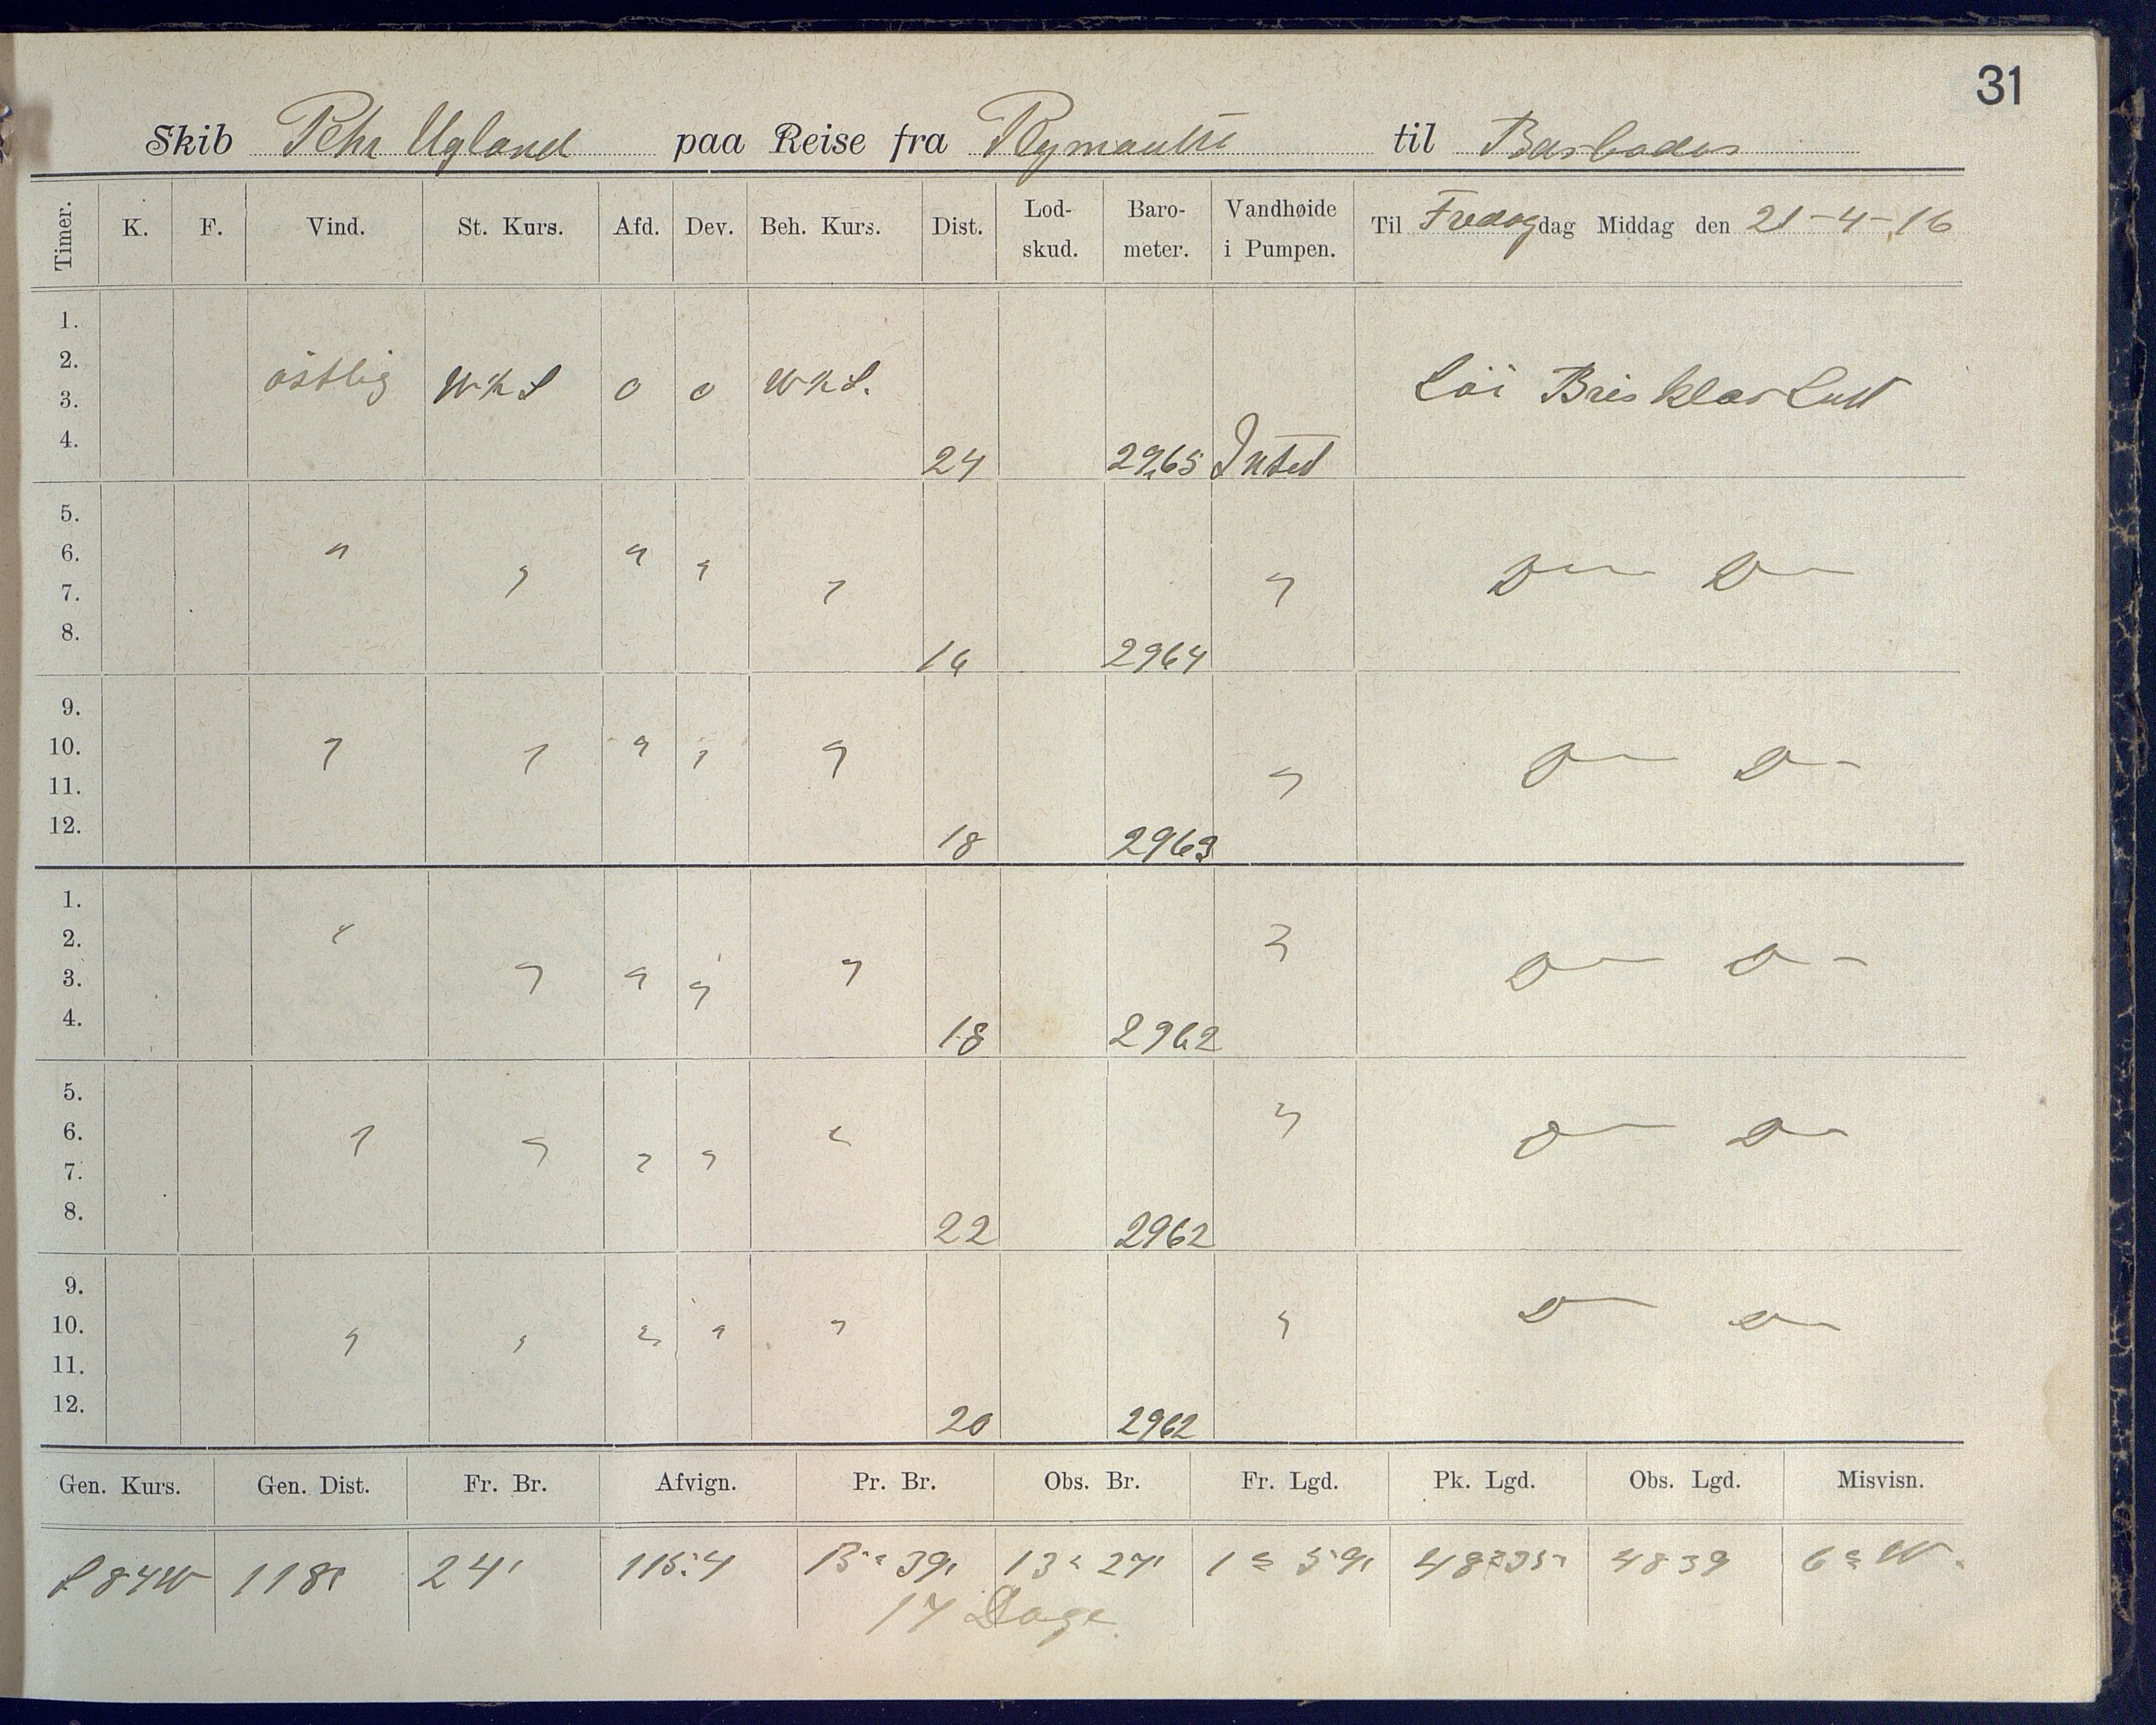 31
Skib Pehr Ugland paa Reise fra Plymouth til Barbados
Timer. K. F. Vind. St. Kurs. Afd. Dev. Beh. Kurs. Dist. Lod-skud. Baro-meter. Vandhøide i Pumpen. Til Fredag dag Middag den 21-4-16
1.
2.
3. östlig W½S o o W½S. Löi Bris klar Luft
4. 24 2965 Intet
5.
6. " " " " D— D—
7. " " "
8. 16 2964
9.
10. " " " " " D— D—
11. "
12. 18 2963
1.
2. " "
3. " " " " D— D—
4. 18 2962
5. "
6. " " " D— D—
7. " "
8. 22 2962
9.
10. " " " " " " D— D—
11.
12. 20 2962
Gen. Kurs. Gen. Dist. Fr. Br. Afvign. Pr. Br. Obs. Br. Fr. Lgd. Pk. Lgd. Obs. Lgd. Misvisn.
S 84 W 118' 24' 115.4 13° 39' 13° 27' 1° 59' 48°35' 48 39 6° W.
17 Dage